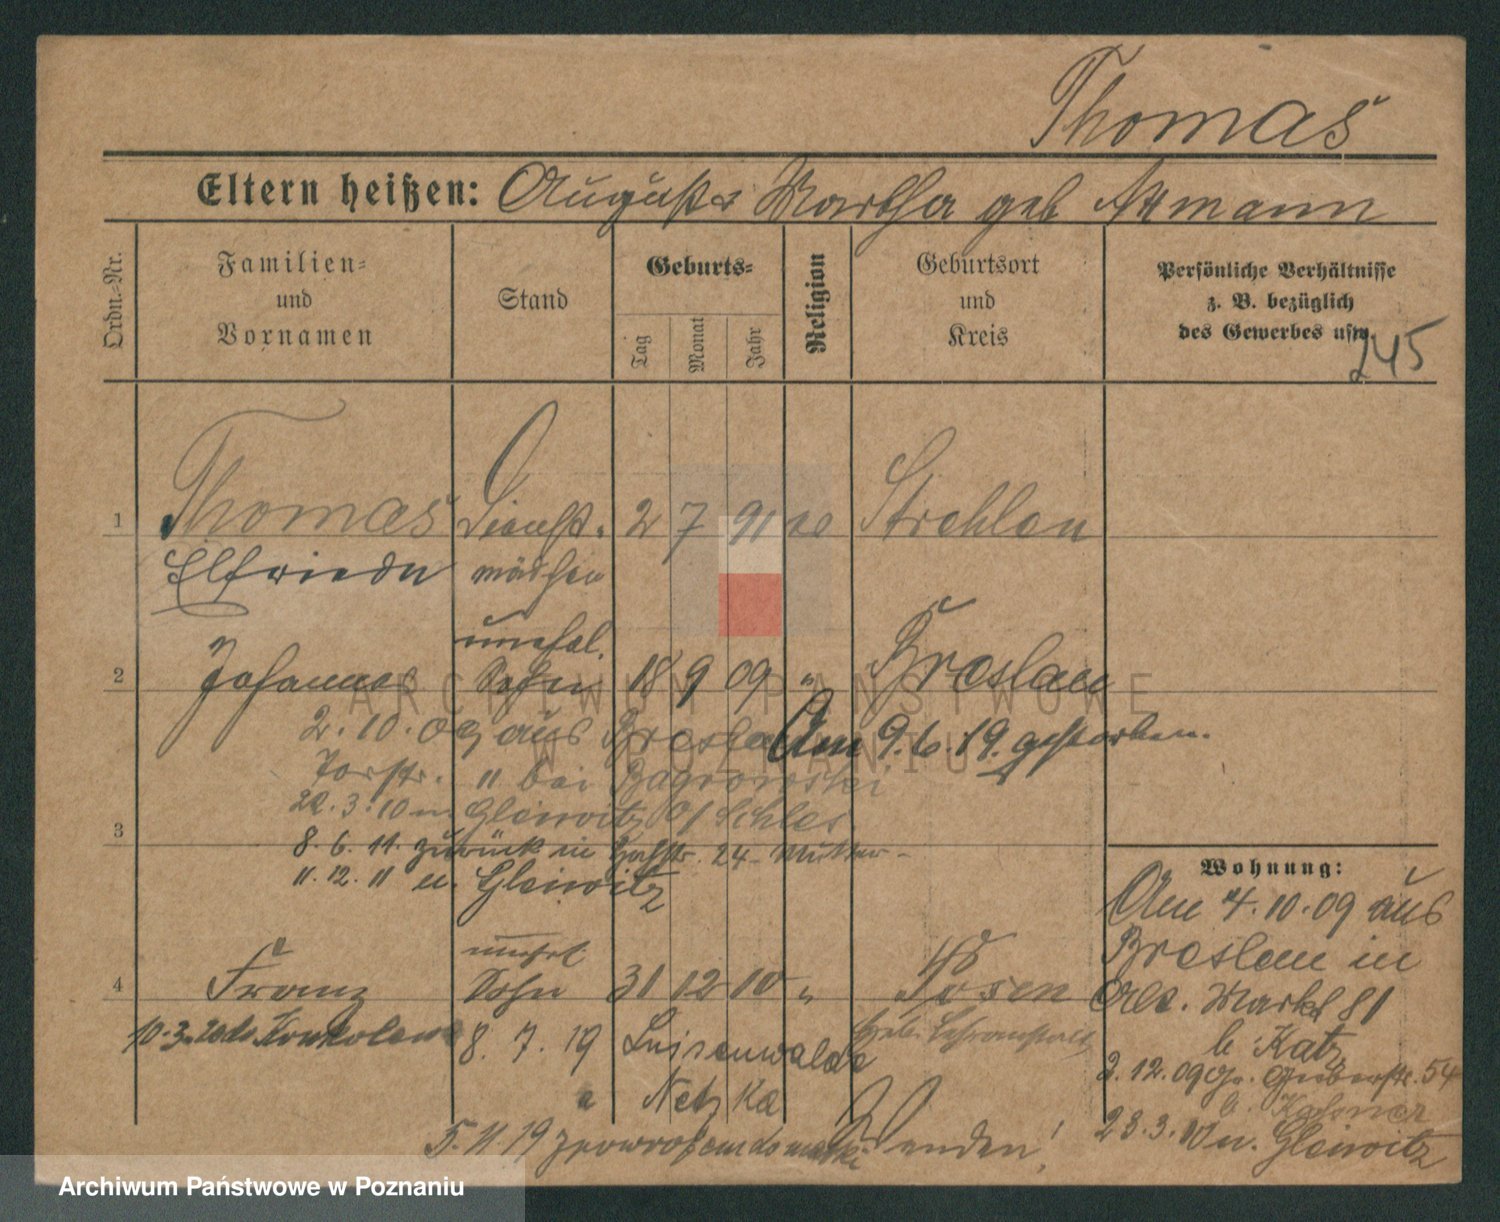 Thomas
Eltern heißen: August u Martha geb
Ordn.-Nr.
Familien-
und
Vornamen
Stand
Geburts-
Tag
Monat
Jahr
Religion
Geburtsort
und
Kreis
Persönliche Verhältnisse
z. B. bezüglich
des Gewerbes usw.
245
1 Thomas Dienst- 2 7 91 Strehlen
Elfriede mädchen
unehel.
2 Johannes Sohn 18 9 09 " Breslau
2. 10. 09 aus Breslau Am 9. 6. 19. gestorben.
Torstr. " bei Bagrowski
22. 3. 10 n. Gleiwitz O/Schles.
3
8. 6. 11. zurück in 24 - Mutter -
11. 12. 11 n. Gleiwitz
unehl
4 Franz Sohn 31 12 10 " Posen
10. 3. 8. 7. 19 Luisenwalde
a Netzka
5. 11. 19 z powrotem do matki Wenden!
Wohnung:
Am 4. 10. 09 aus
Breslau in
Alt. Markt 81
b. Katz
2. 12. 09 Gr. 54
b.
23. 3. 10 n. Gleiwitz
ARCHIWUM PAŃSTWOWE
W POZNANIU
Archiwum Państwowe w Poznaniu